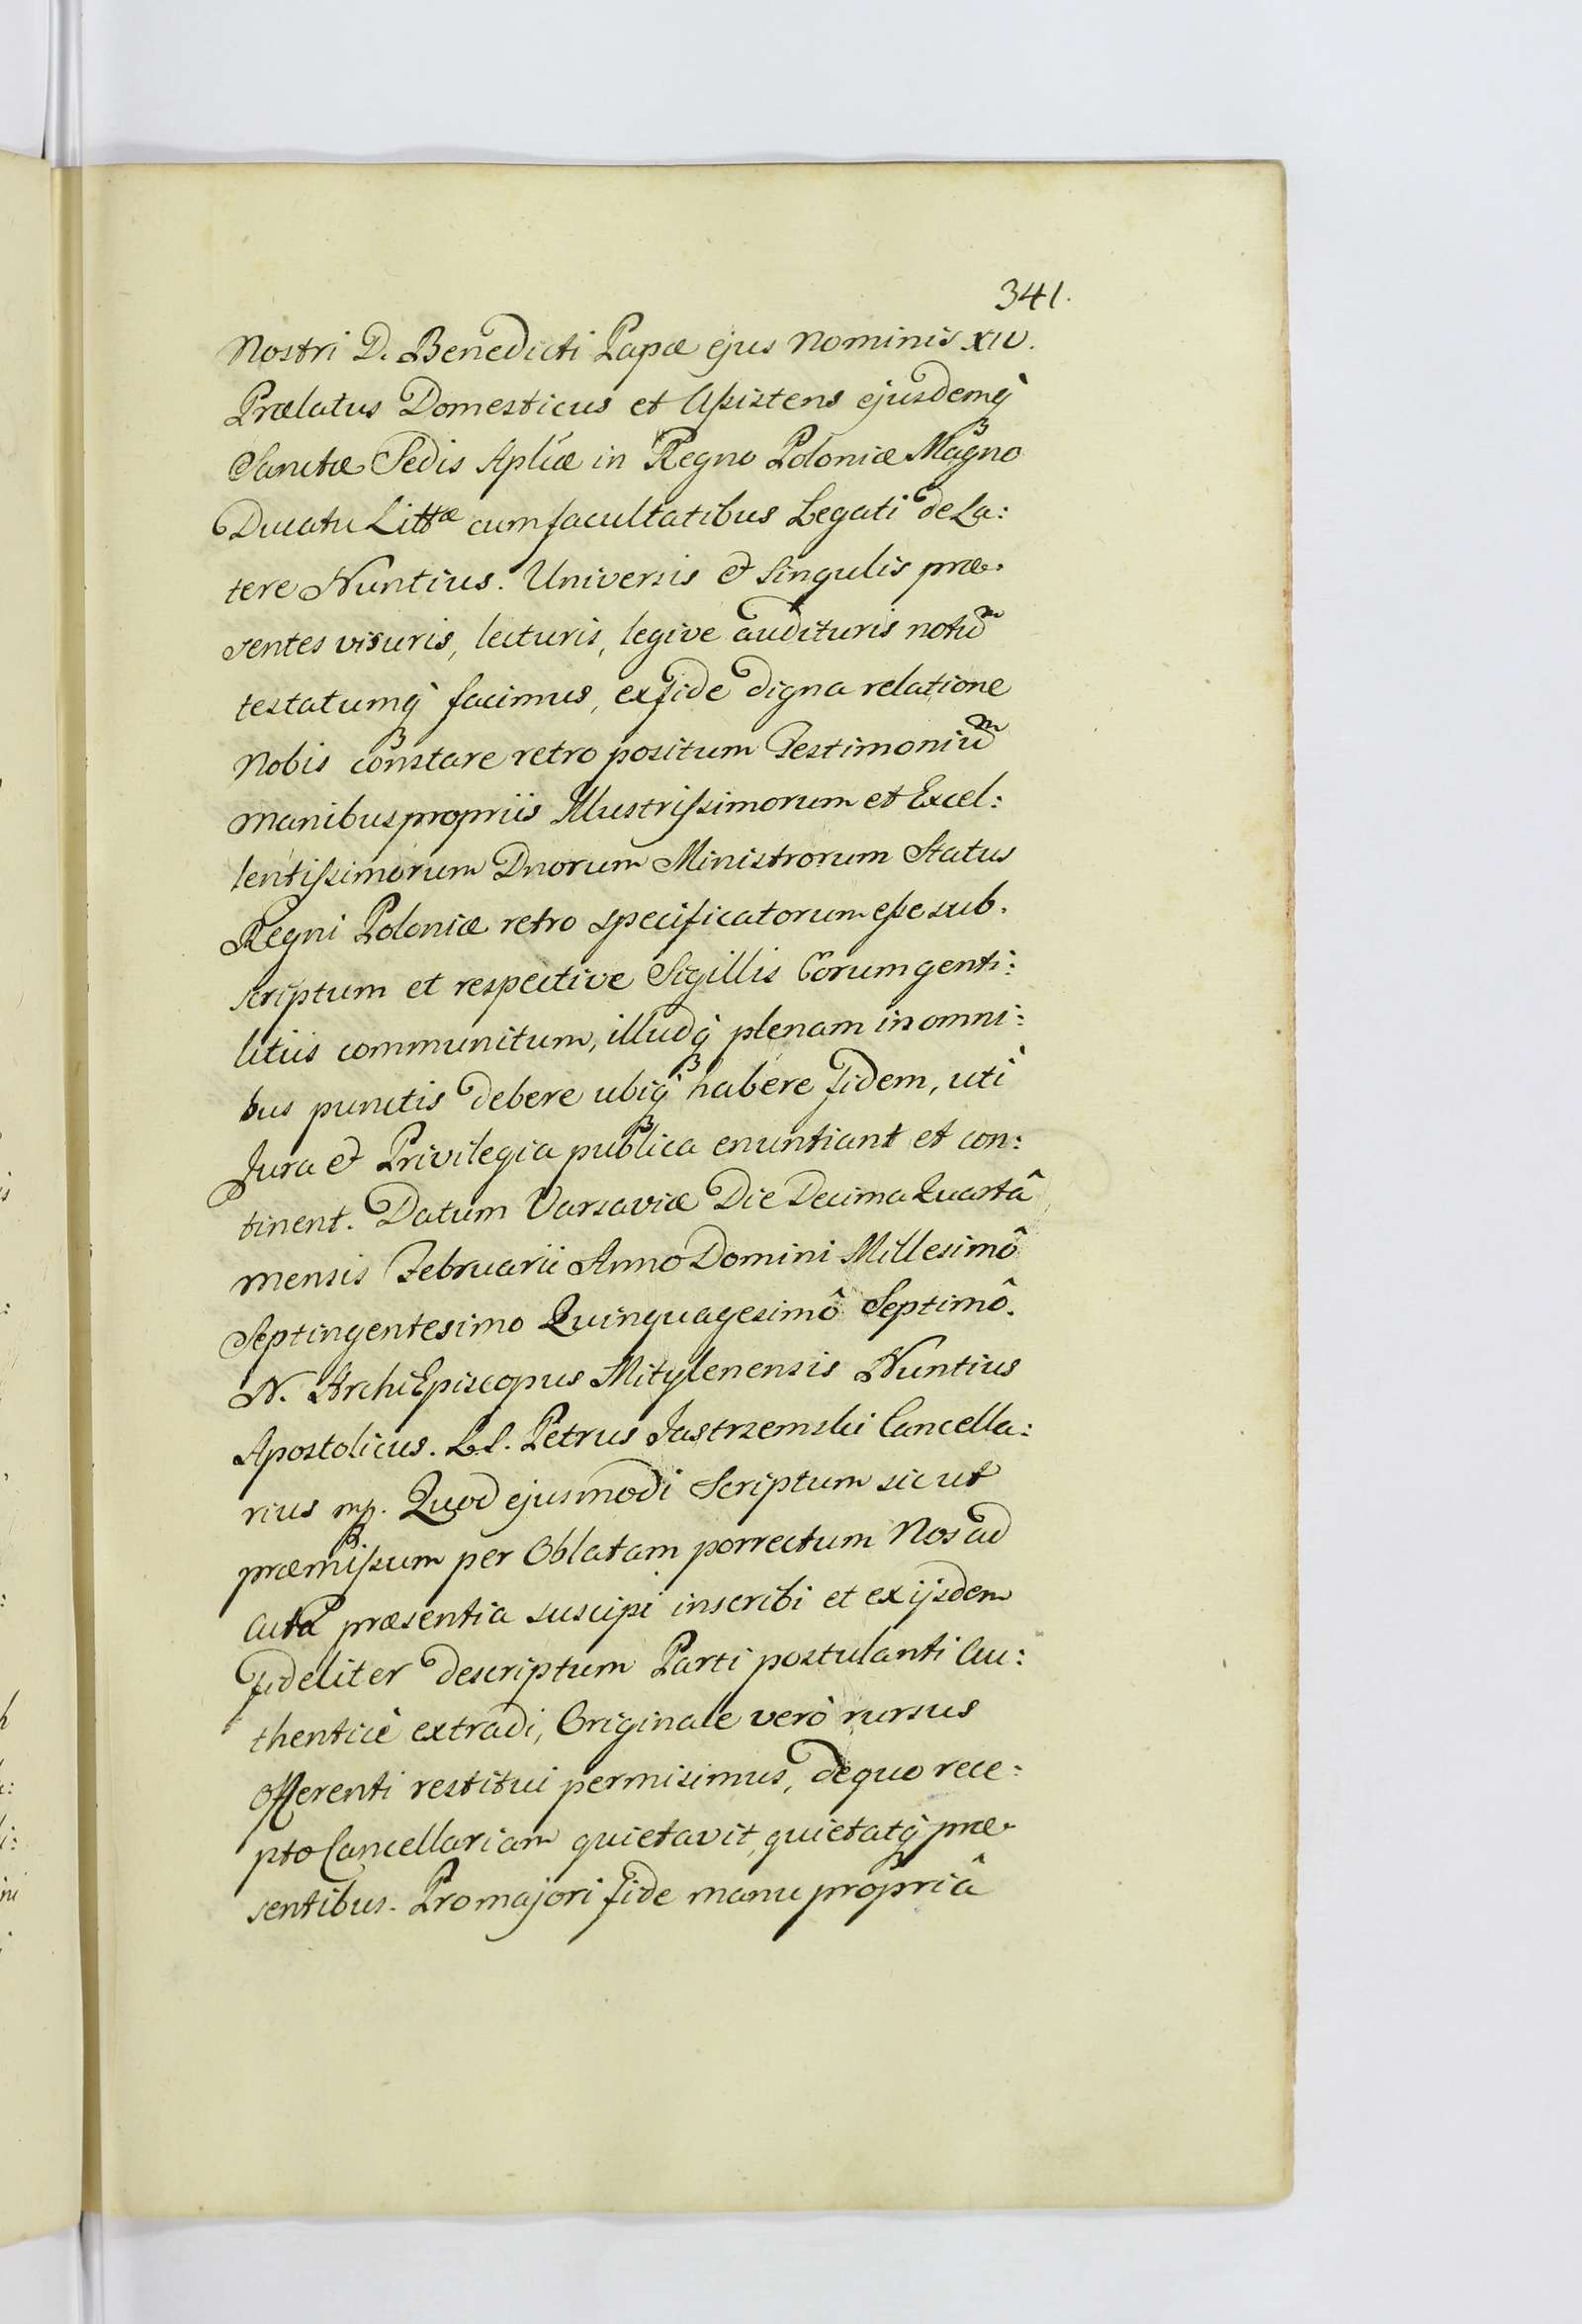 341.
Nostri D. Benedicti Papæ ejus Nominis XIV.
Prælatus Domesticus et Assistens ejusdemq̀
Sanctæ Sedis Aplicæ in Regno Poloniæ Magno
Ducatu Littæ cum facultatibus Legati de La:
tere Nuntius. Universis & singulis præ:
sentes visuris, lecturis, legive audituris notum
testatumq̀ facimus, ex fide digna relatione
Nobis constare retro positum Testimonium
Manibus propriis Illustrissimorum et Excel:
lentissimorum Dnorum Ministrorum Status
Regni Poloniæ retro specificatorum esse sub:
scriptum et respective Sigillis Eorum genti:
litiis communitum, illudq̀ plenam in omni:
bus punctis debere ubiq̀ habere fidem, uti
Jura & Privilegia publica enuntiant et con:
tinent. Datum Varsaviæ Die Decima Quartâ
mensis Februarii Anno Domini Millesimô
Septingentesimo Quinquagesimô Septimô.
N. ArchiEpiscopus Mitylenensis Nuntius
Apostolicus. L.S. Petrus Jastrzemski Cancella:
rius mp. Quod ejusmodi Scriptum sicut
præmissum per Oblatam porrectum Nos ad
Acta præsentia suscipi inscribi et ex ijsdem
fideliter descriptum Parti postulanti Au:
thenticè extradi, Originale verò rursus
Offerenti restitui permisimus, de quo rece:
pto Cancellariam quietavit, quietatq̀ præ:
sentibus. Pro majori fide manu propriâ